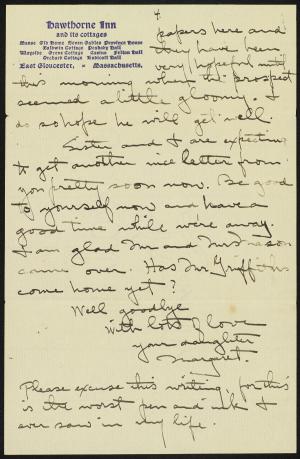 4
Hawthorne Inn
and its cottages
Manse Old Home Seven Gables Province House
Baldwin Cottage Peabody Hall
Wayside Grove Cottage Casino Felton Hall
Orchard Cottage Endicott Hall
East Gloucester, - Massachusetts.
papers here and
they have been
very hopeful until
this morning when the prospect
seemed a little gloomy. I
do so hope he will get well.
Sister and I are expecting
to get another nice letter from
you pretty soon now. Be good
to yourself now and have a
good time while we're away.
I am glad Mr and Mrs
came over. Has Mr. Griffiths
come home yet?
Well goodbye
with lots of love
your daughter
Margret.
Please excuse this writing, for this
is the worst pen and ink I
ever saw in my life.